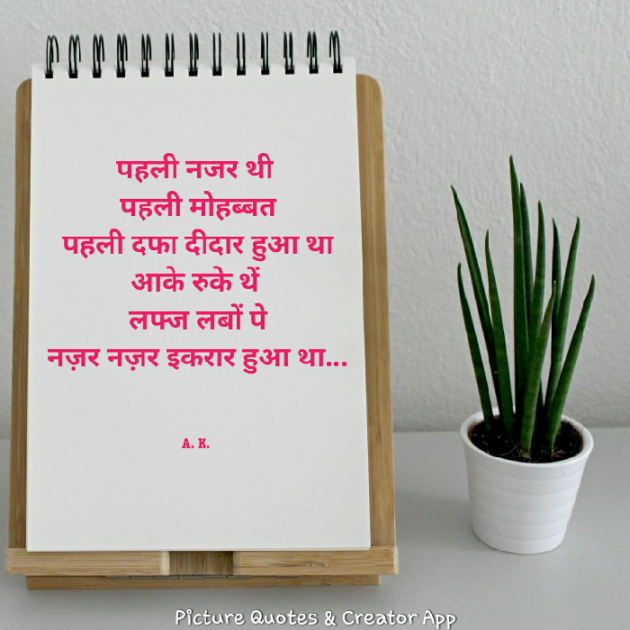 पहली नजर थी
पहली मोहब्बत
पहली दफा दीदार हुआ था
आके रुके थें
लफ्ज लबों पे
नज़र नज़र इकरार हुआ था...
A. K.
Picture Quotes & Creator App